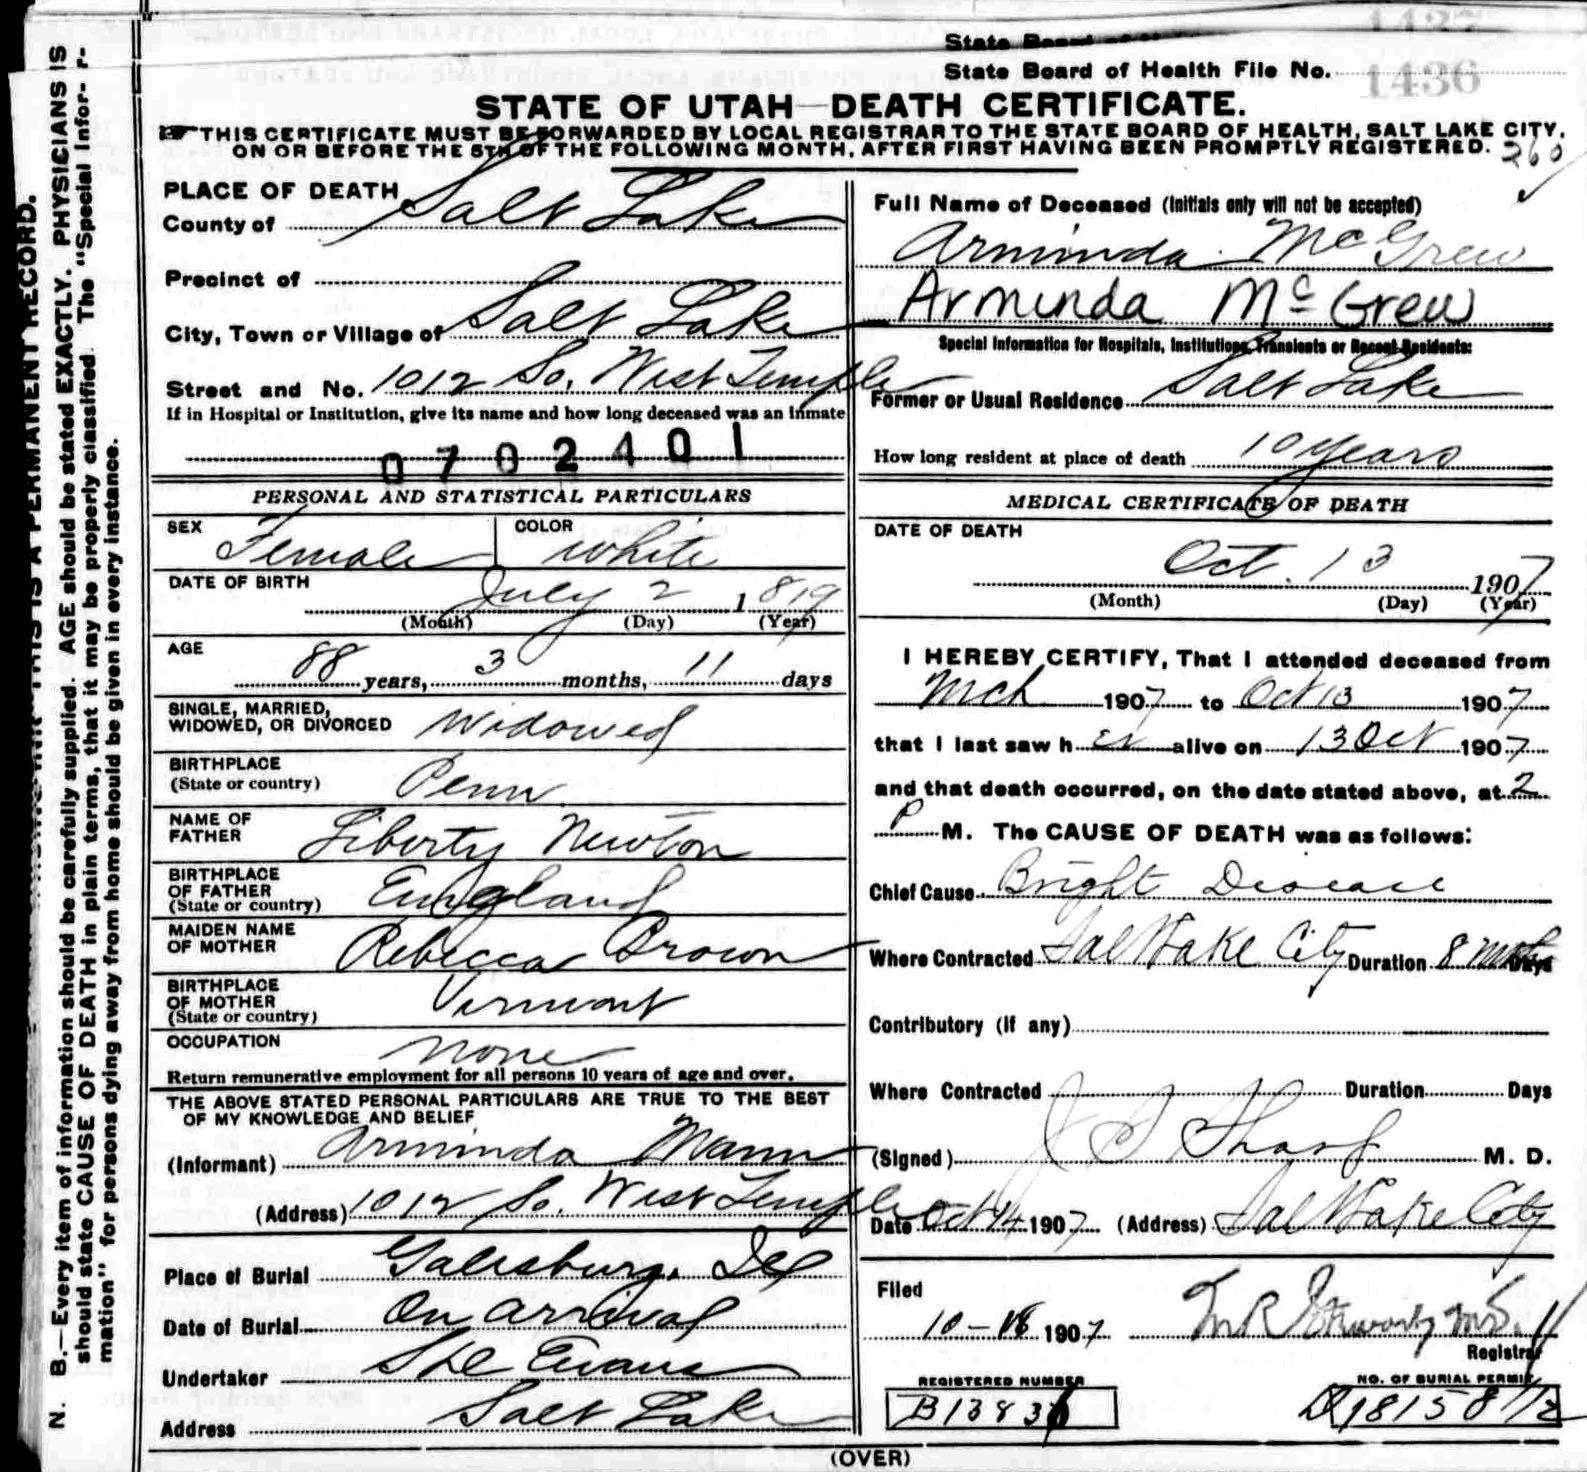 1437
State Board of H
State Board of Health File No. 1436
STATE OF UTAH—DEATH CERTIFICATE.
THIS CERTIFICATE MUST BE FORWARDED BY LOCAL REGISTRAR TO THE STATE BOARD OF HEALTH, SALT LAKE CITY,
ON OR BEFORE THE 5TH OF THE FOLLOWING MONTH, AFTER FIRST HAVING BEEN PROMPTLY REGISTERED. 260
PLACE OF DEATH
County of Salt Lake
Precinct of
City, Town or Village of Salt Lake
Street and No. 1012 So. West Temple
If in Hospital or Institution, give its name and how long deceased was an inmate
0702401
PERSONAL AND STATISTICAL PARTICULARS
SEX Female COLOR White
DATE OF BIRTH July 2 1819
(Month) (Day) (Year)
AGE
88 years, 3 months, 11 days
SINGLE, MARRIED,
WIDOWED, OR DIVORCED Widowed
BIRTHPLACE
(State or country) Penn.
NAME OF
FATHER Liberty Newton
BIRTHPLACE
OF FATHER
(State or country) England
MAIDEN NAME
OF MOTHER Rebecca Brown
BIRTHPLACE
OF MOTHER
(State or country) Vermont
OCCUPATION None
Return remunerative employment for all persons 10 years of age and over.
THE ABOVE STATED PERSONAL PARTICULARS ARE TRUE TO THE BEST
OF MY KNOWLEDGE AND BELIEF
(Informant) Arminda Mann
(Address) 1012 So. West Temple
Place of Burial Galesburg, Ill
Date of Burial On arrival
Undertaker Evans
Address Salt Lake
Full Name of Deceased (Initials only will not be accepted)
Arminda McGrew
Arminda McGrew
Special Information for Hospitals, Institutions, Transients or Recent Residents:
Former or Usual Residence Salt Lake
How long resident at place of death 10 years
MEDICAL CERTIFICATE OF DEATH
DATE OF DEATH
Oct. 13 1907
(Month) (Day) (Year)
I HEREBY CERTIFY, That I attended deceased from
Mch 1907 to Oct 13 1907
that I last saw her alive on 13 Oct 1907
and that death occurred, on the date stated above, at 2
P M. The CAUSE OF DEATH was as follows:
Chief Cause Bright Disease
Where Contracted Salt Lake City Duration 8 mths Days
Contributory (if any)
Where Contracted Duration Days
(Signed) J S Sharp M. D.
Date Oct 14 1907 (Address) Salt Lake City
Filed
10-18 1907
Registrar
REGISTERED NUMBER NO. OF BURIAL PERMIT
(OVER)
N. B.—Every item of information should be carefully supplied. AGE should be stated EXACTLY. PHYSICIANS IS
should state CAUSE OF DEATH in plain terms, that it may be properly classified. The "Special Infor- r-
mation" for persons dying away from home should be given in every instance.
THIS IS A PERMANENT RECORD.